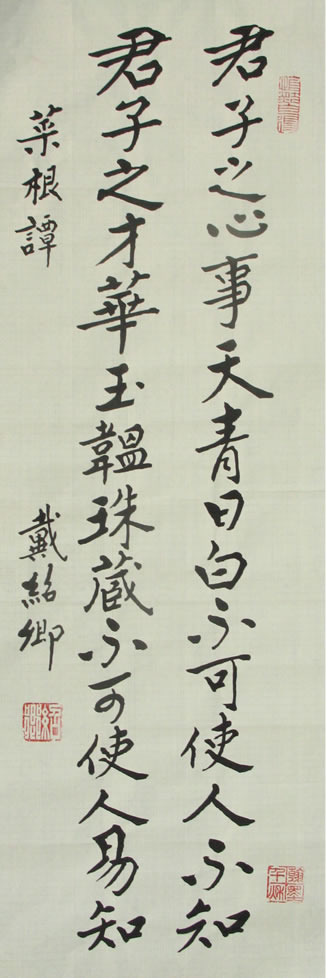 君子之心事天青日白不可使人不知
君子之才華玉韞珠蔵不可使人易知
菜根譚
戴紹卿